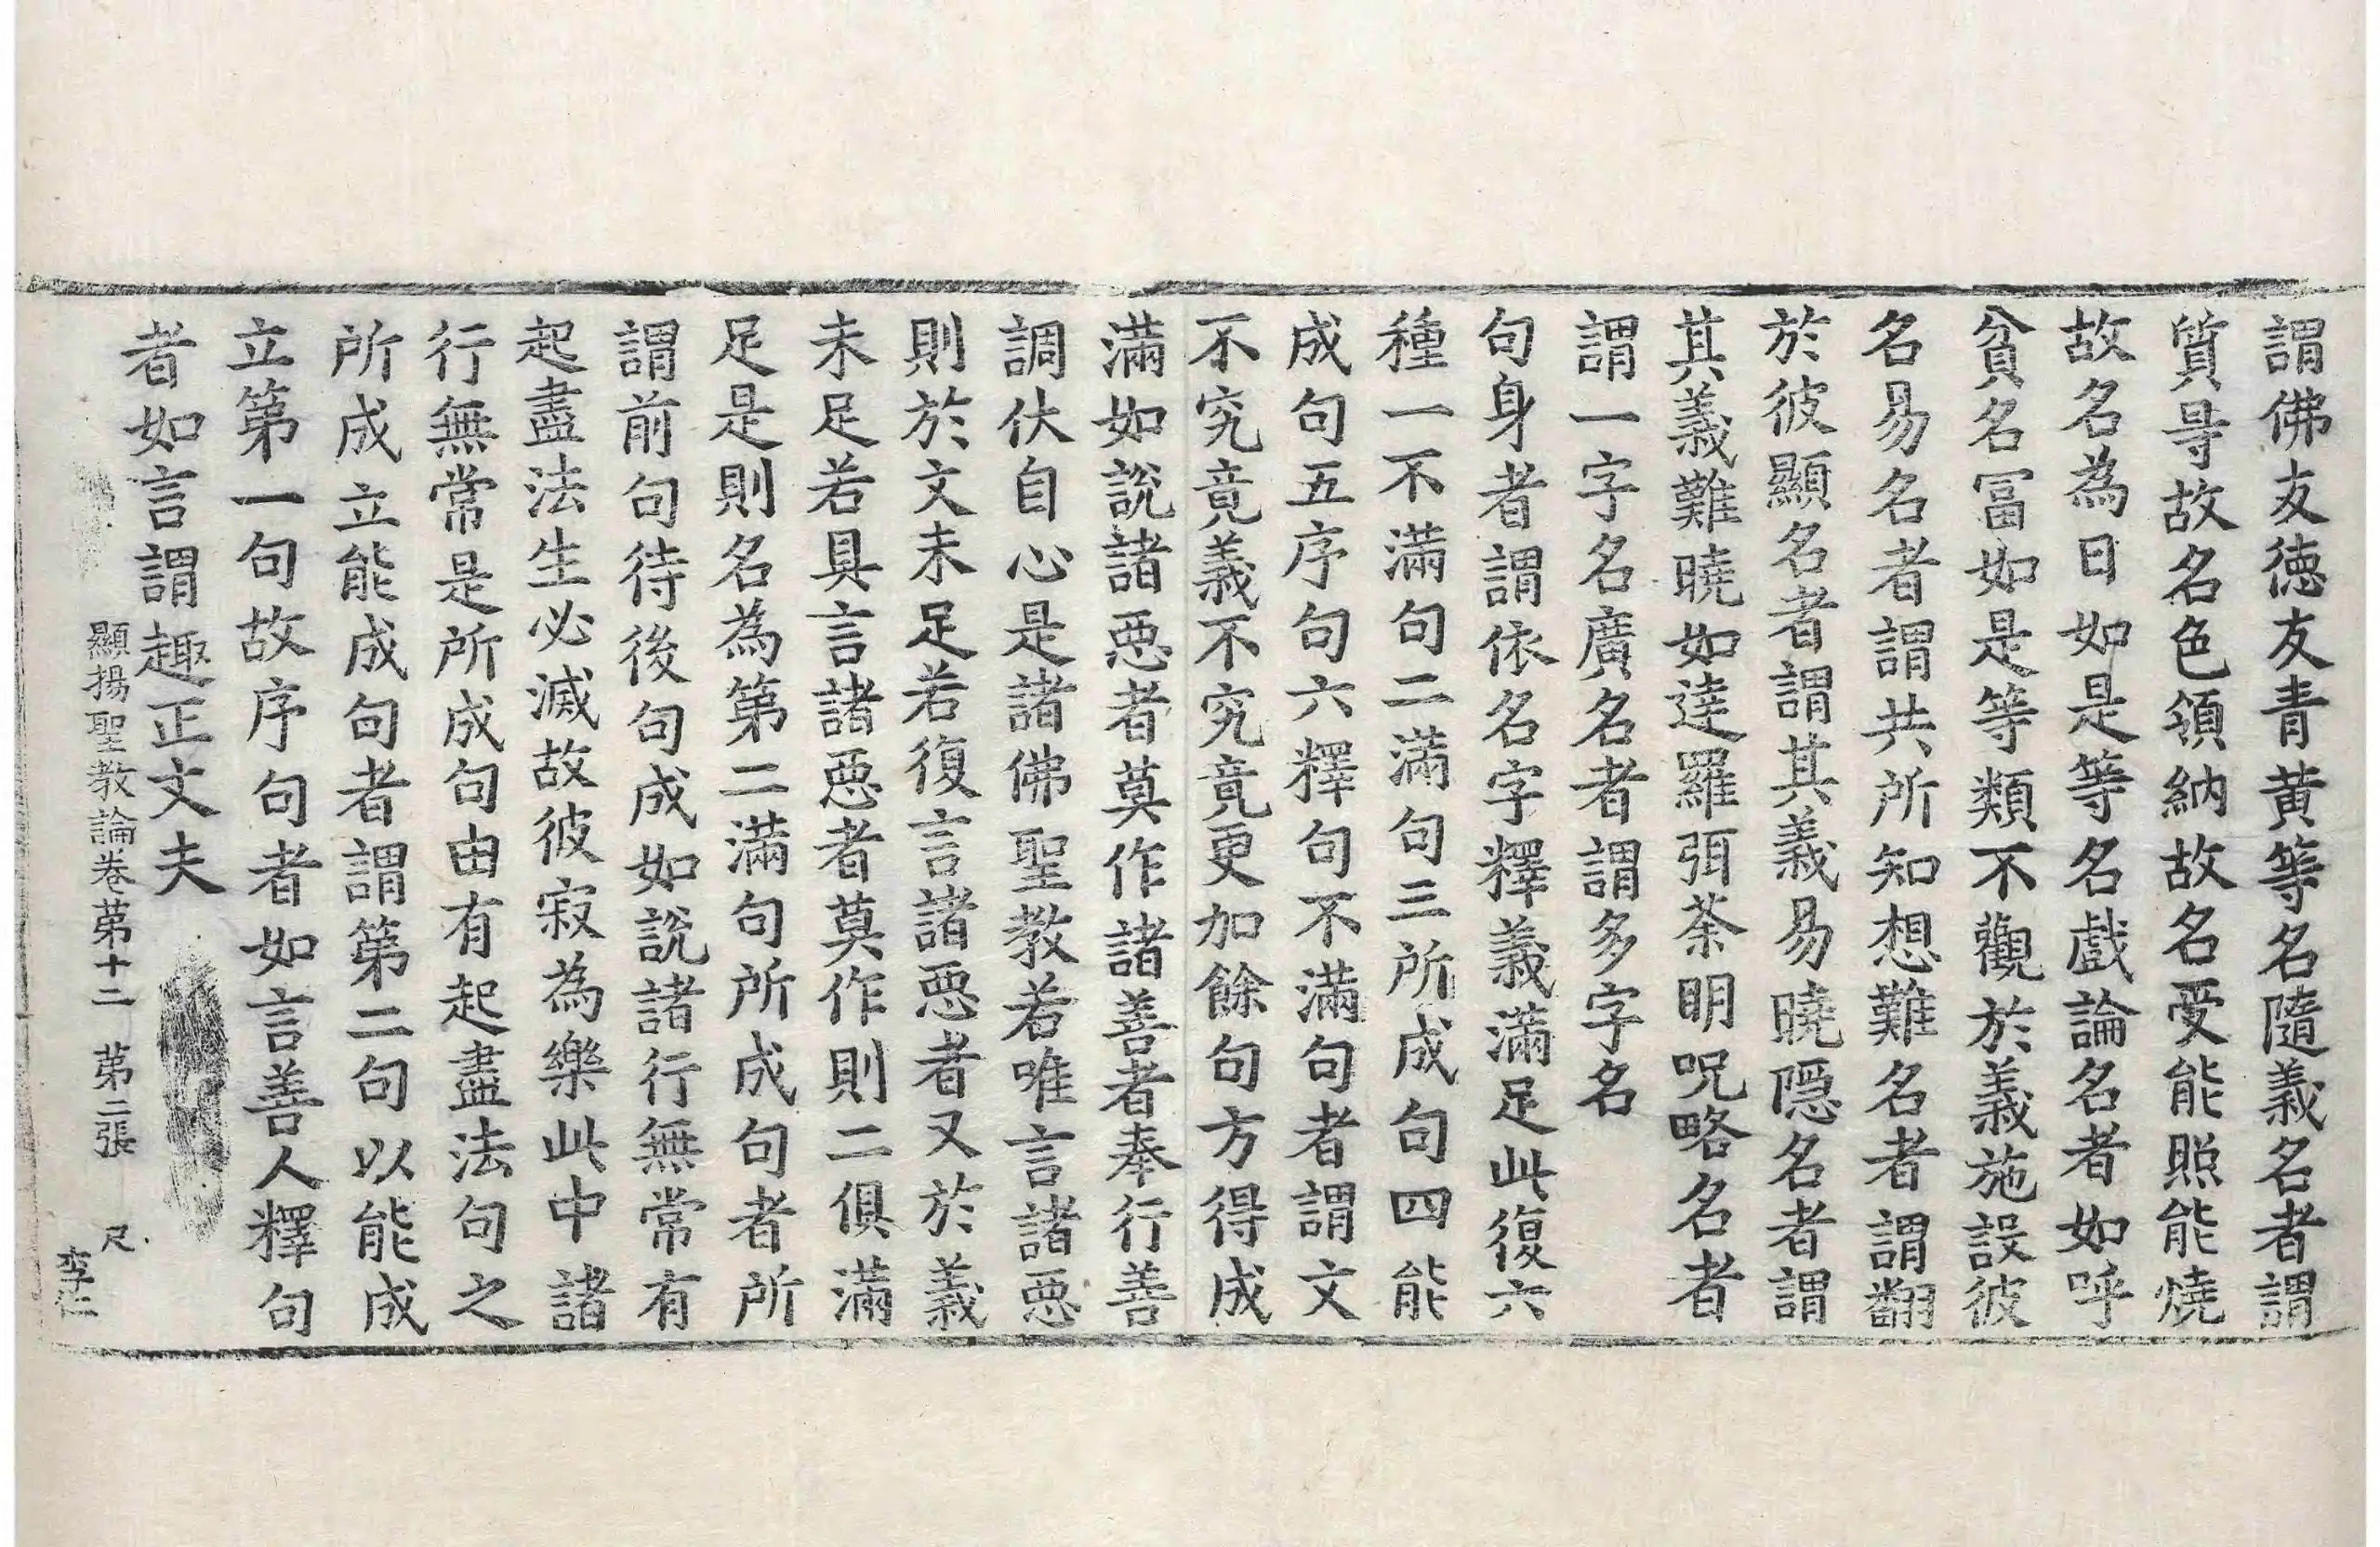 謂佛友德友青黄等名隨義名者謂
質㝵故名色領納故名受能照能燒
故名為日如是等名戲論名者如呼
貧名冨如是等類不觀於義施設彼
名易名者謂共所知想難名者謂翻
於彼顯名者謂其義易曉隱名者謂
其義難曉如達羅弭荼明呪略名者
謂一字名廣名者謂多字名
句身者謂依名字釋義滿足此復六
種一不滿句二滿句三所成句四能
成句五序句六釋句不滿句者謂文
不究竟義不究竟更加餘句方得成
滿如說諸惡者莫作諸善者奉行善
調伏自心是諸佛聖教若唯言諸惡
則於文未足若復言諸惡者又於義
未足若具言諸惡者莫作則二俱滿
足是則名為第二滿句所成句者所
謂前句待後句成如說諸行無常有
起盡法生必滅故彼寂為樂此中諸
行無常是所成句由有起盡法句之
所成立能成句者謂第二句以能成
立第一句故序句者如言善人釋句
者如言謂趣正丈夫
顯揚聖教論卷第十二 第二張 尺
李仁